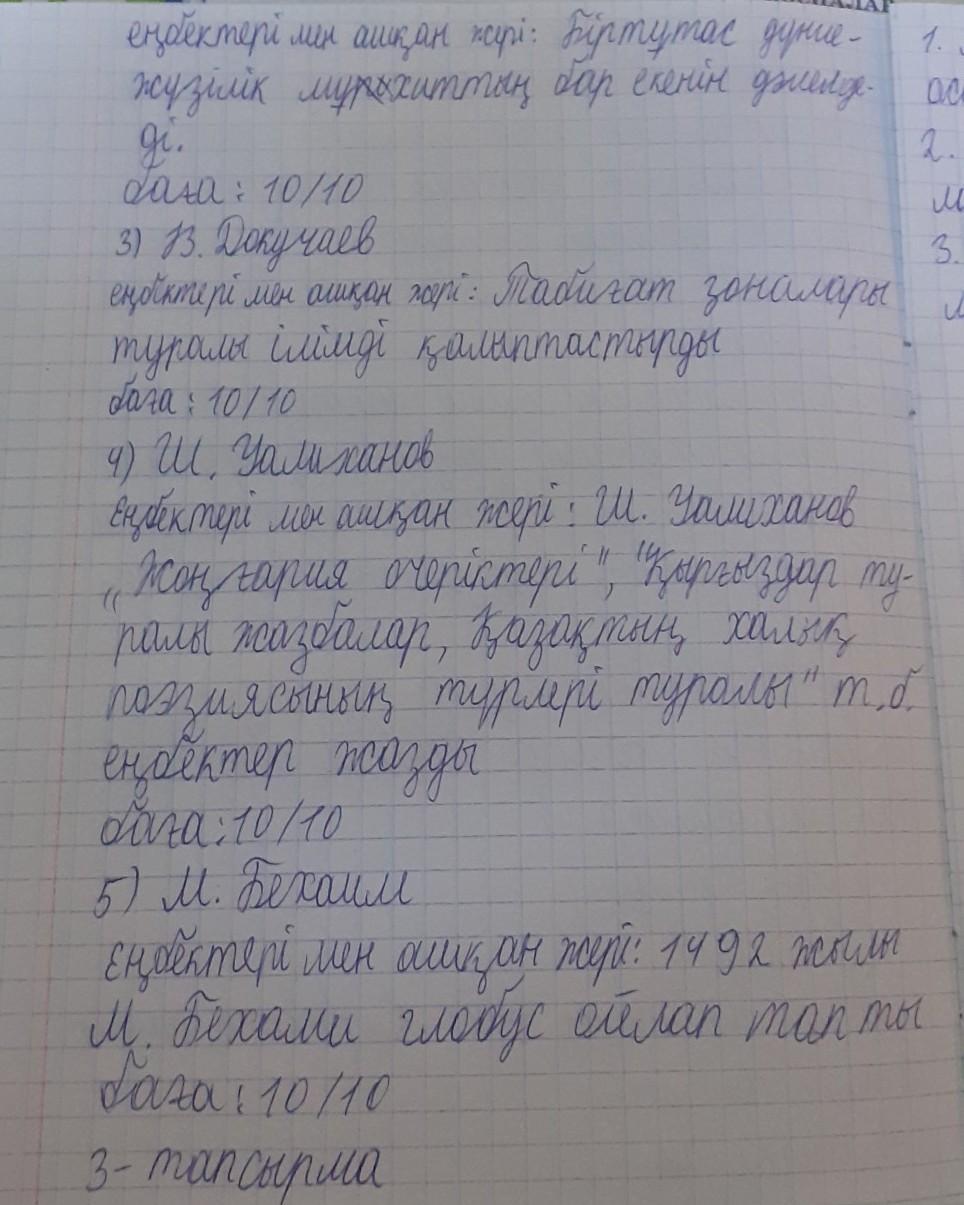 еңбектері мен ашқан жері: Біртұтас дүние-
жүзілік мұхиттың бар екенін дәлелде-
ді.
баға: 10/10
3) В. Докучаев
еңбектері мен ашқан жері: Табиғат зоналары
туралы ілімді қалыптастырды
баға: 10/10
4) Ш. Уалиханов
Еңбектері мен ашқан жері: Ш. Уалиханов
„Жоңғария очеріктері", "Қырғыздар ту-
ралы жазбалар, Қазақтың халық
поэзиясының түрлері туралы" т.б.
еңбектер жазды
баға: 10/10
5) М. Бехаим
Еңбектері мен ашқан жері: 1492 жылы
М. Бехами глобус ойлап тапты
баға: 10/10
3-тапсырма
1.
ос
2.
м
3.